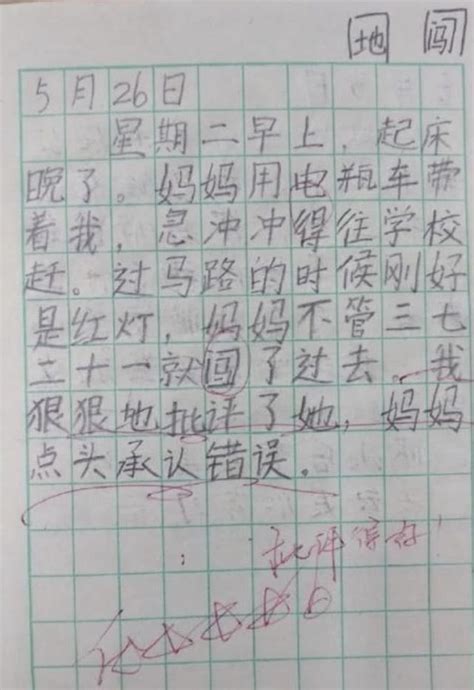 地 闯
5月26日
星期二早上，起床
晚了。妈妈用电瓶车带
着我，急冲冲得往学校
赶。过马路的时候刚好
是红灯，妈妈不管三七
二十一就闯了过去。我
狠狠地批评了她，妈妈
点头承认错误。
批评得好！